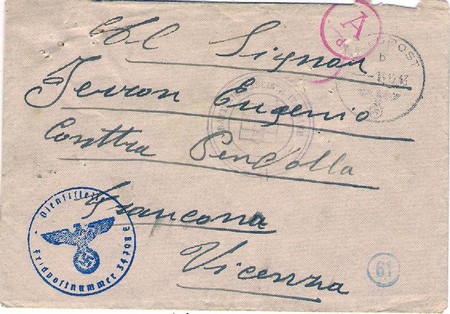 Al Signor
Ferron Eugenio
Conttra Pendolla
Grancona
Vicenza
A
b
61
Dienststelle
Feldpostnummer 34708 E